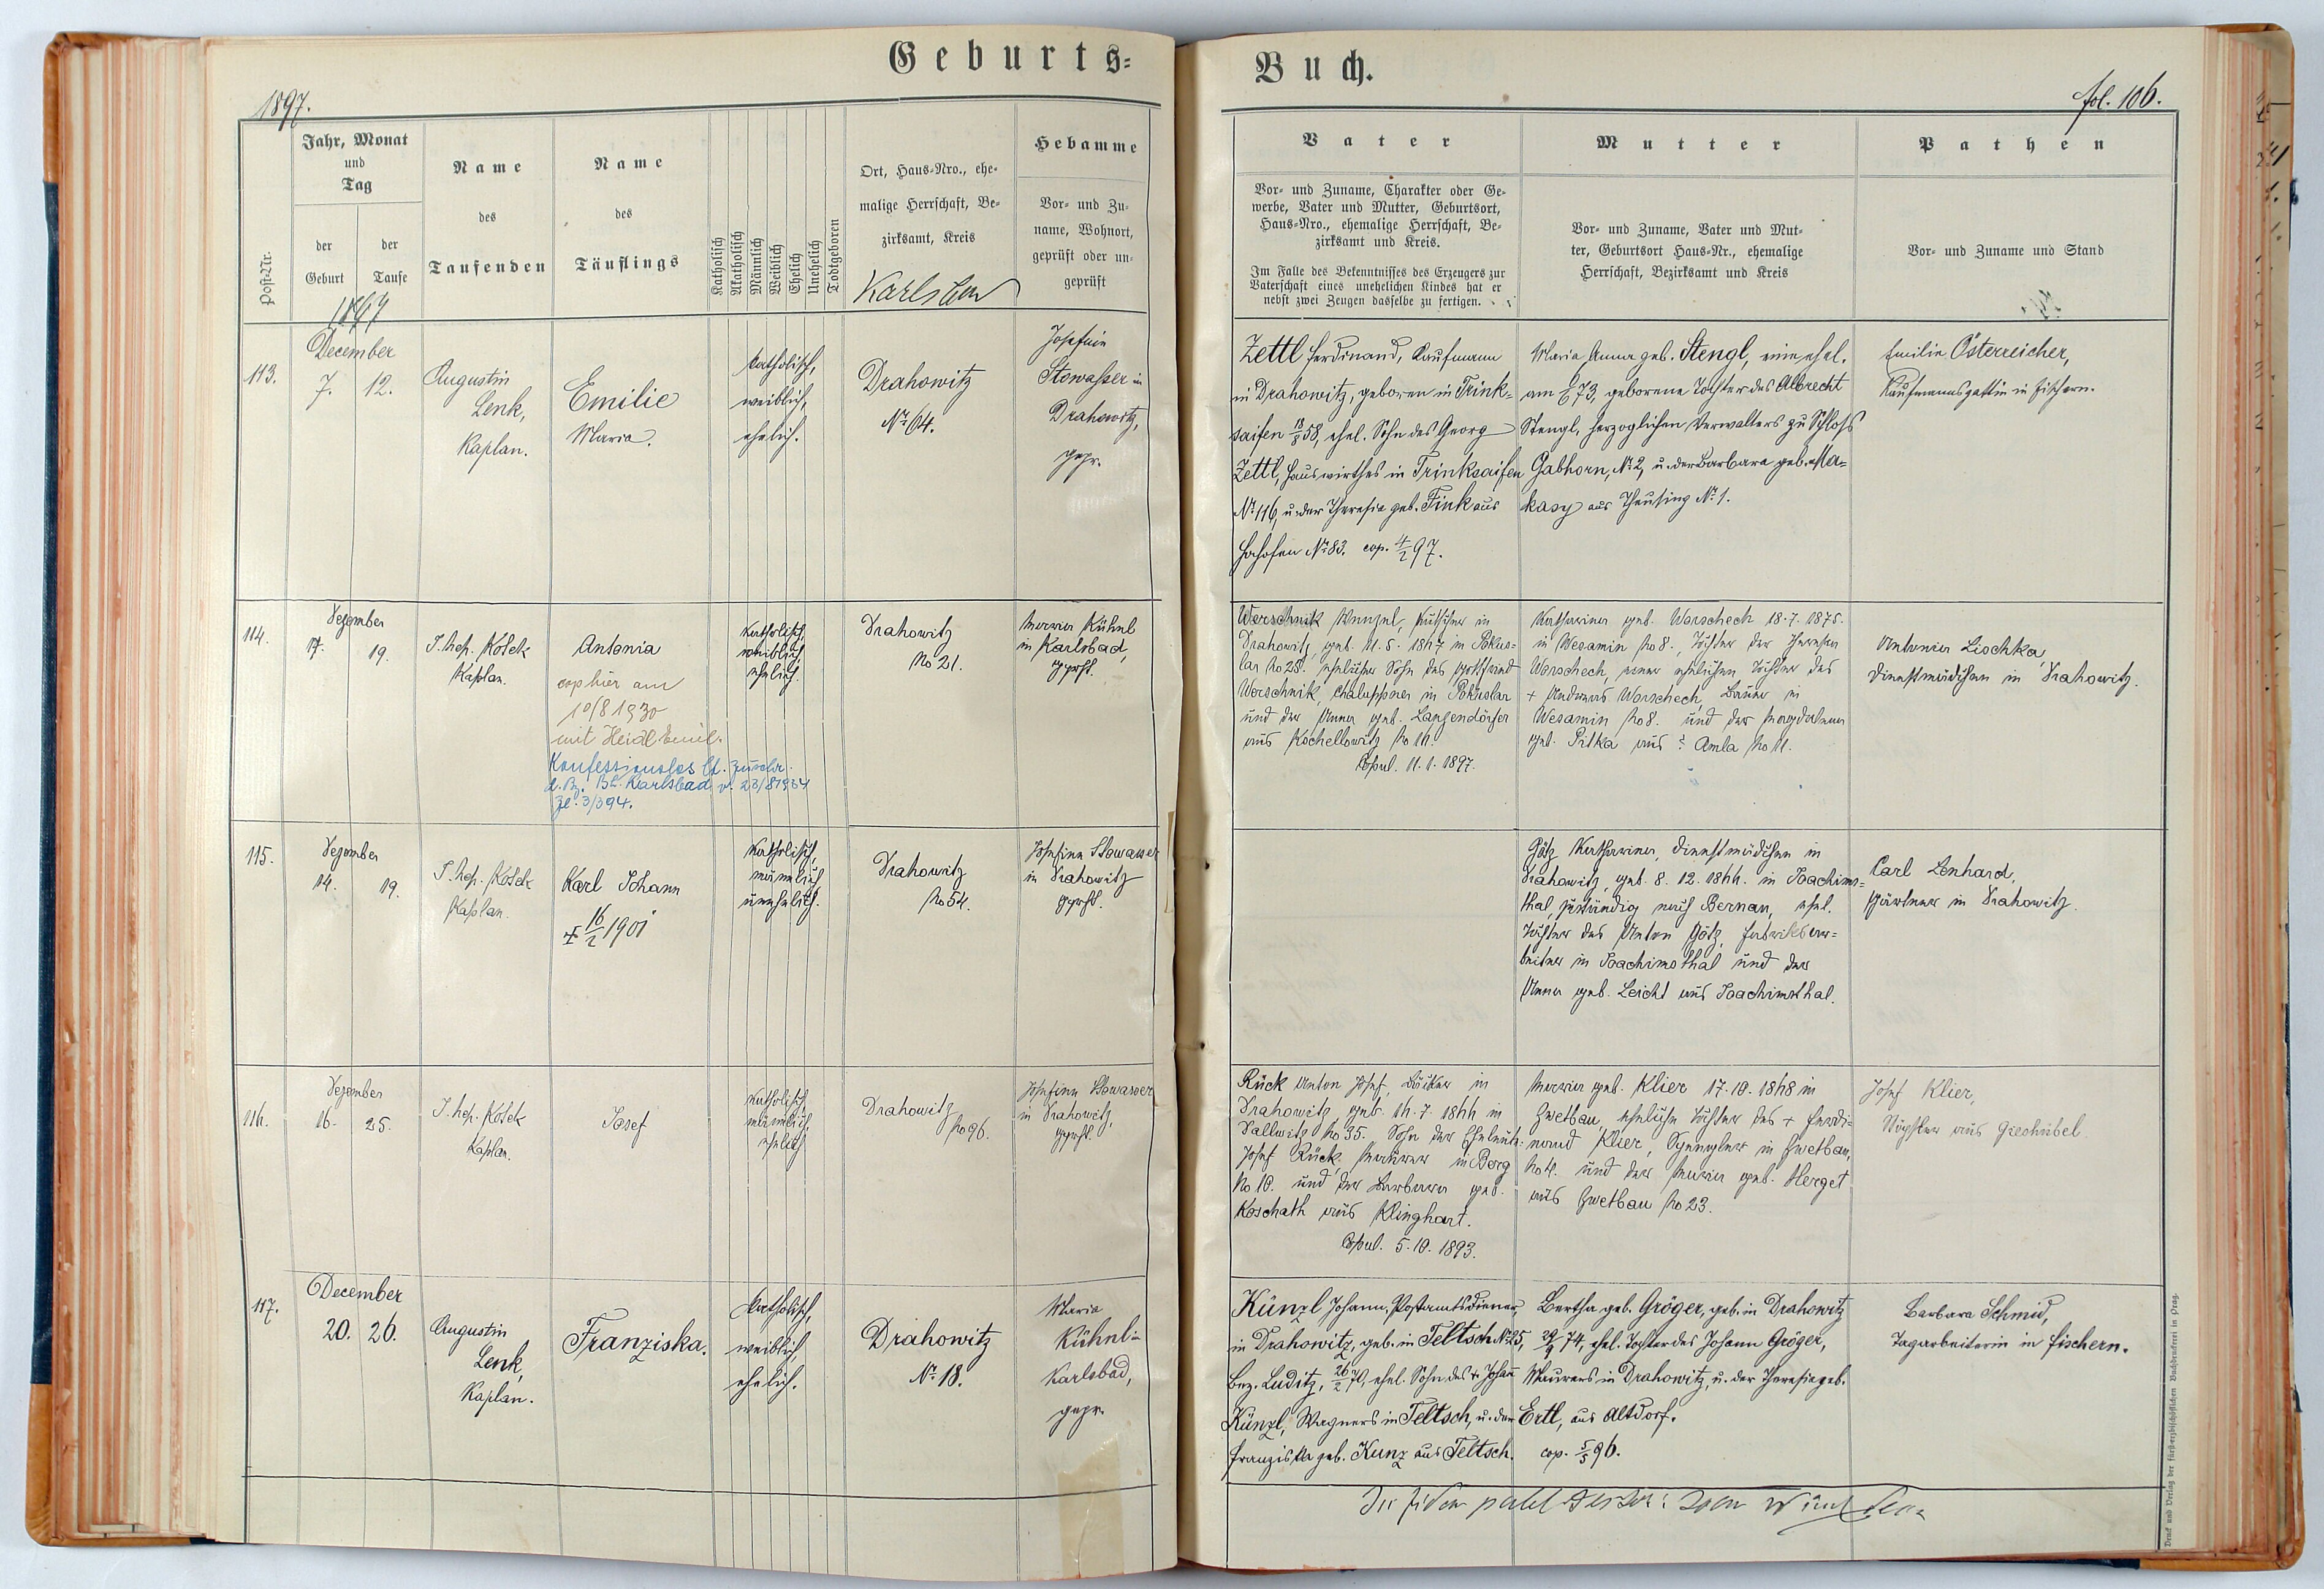 Geburts-
Buch.
1897.
fol. 106.
Post-Nr.
Jahr, Monat
und
Tag
der
Geburt
der
Taufe
Name
des
Taufenden
Name
des
Täuflings
Katholisch
Akatholisch
Männlich
Weiblich
Ehelich
Unehelich
Todtgeboren
Ort, Haus-Nro., ehe-
malige Herrschaft, Be-
zirksamt, Kreis
Karlsbad
Hebamme
Vor- und Zu-
name, Wohnort,
geprüft oder un-
geprüft
Vater
Vor- und Zuname, Charakter oder Ge-
werbe, Vater und Mutter, Geburtsort,
Haus-Nro., ehemalige Herrschaft, Be-
zirksamt und Kreis.
Im Falle des Bekenntnisses des Erzeugers zur
Vaterschaft eines unehelichen Kindes hat er
nebst zwei Zeugen dasselbe zu fertigen.
Mutter
Vor- und Zuname, Vater und Mut-
ter, Geburtsort Haus-Nr., ehemalige
Herrschaft, Bezirksamt und Kreis
Pathen
Vor- und Zuname und Stand
1897
December
113.
7.
12.
Augustin
Lenk,
Kaplan.
Emilie
Maria.
katholisch,
weiblich,
ehelich.
Drahowitz
No. 64.
Josefine
Stowasser in
Drahowitz,
gepr.
Zettl Ferdinand, Kaufmann
in Drahowitz, geboren in Trink-
saifen 58, ehel. Sohn des Georg
Zettl, Hauswirthes in Trinksaifen
No. 116, u. der Theresia geb. Fink aus
No. 83. cop. 4/2 97.
Maria Anna geb. Stengl,
am 73, geborene Tochter des Albrecht
Stengl, herzoglichen Verwalters zu Schloß
Gabhorn, No. 2, u. der Barbara geb. Ma-
kasy aus Theusing No. 1.
Emilie Österreicher,
Kaufmannsgattin in Fischern.
114.
Dezember
17.
19.
J. Nep. Kosek
Kaplan.
Antonia
cop hier am
10/8 1930
mit Heidl Emil.
Konfessionslos lt. Zuschr.
d. Bz. Bh. Karlsbad v. 23/8 1934
Zl. 3/394.
Katholisch,
weiblich
ehelich.
Drahowitz
No 21.
Maria Kühnl
in Karlsbad,
geprft.
Werschnik Wenzel, Kutscher in
Drahowitz, geb. 11. 5. 1867 in Pokus-
lar No 28. ehelicher Sohn des Gottfried
Werschnik, Chaluppner in Pokuslar
und der Anna geb. Langendörfer
aus Kochellowitz No 16.
Copul. 11. 1. 1897.
Katharina geb. Worschech 18. 7. 1875.
in Wesamin No 8., Tochter der Theresia
Worschech, einer ehelichen Tochter des
+ Andreas Worschech, Bauer in
Wesamin No 8. und der Magdalena
geb. Pitka aus ? Amla No 11.
Antonia Lischka,
Dienstmädchen in Drahowitz.
115.
Dezember
14.
19.
J. Nep. Kosek
Kaplan.
Karl Johann
+ 16/2 1901
Katholisch,
männlich
unehelich.
Drahowitz
No 54.
Josefine Stowasser
in Drahowitz
geprft.
Götz Katharina, Dienstmädchen in
Drahowitz, geb. 8. 12. 1866. in Joachims-
thal, zuständig nach Bernau, ehel.
Tochter des Anton Götz, Fabriksar-
beiter in Joachimsthal und der
Anna geb. Leicht aus Joachimsthal.
Carl Lenhard,
Gärtner in Drahowitz.
116.
Dezember
16.
25.
J. Nep. Kosek
Kaplan.
Josef
Katholisch
männlich
ehelich
Drahowitz
No 96.
Josefine Stowasser
in Drahowitz,
geprft.
Rück Anton Josef, Bäcker in
Drahowitz, geb. 16. 7. 1866 in
Dallwitz No 35. Sohn der Eheleute
Josef Rück, Maurer in Berg
No 10. und der Barbara geb.
Koschath aus Klinghart.
Copul. 5. 10. 1893.
Maria geb. Klier 17. 10. 1868 in
Zwetbau, eheliche Tochter des + Ferdi-
nand Klier, Spengler in Zwetbau,
No 4. und der Maria geb. Herget
aus Zwetbau No 23.
Josef Klier,
aus Gieshübel.
117.
December
20.
26.
Augustin
Lenk,
Kaplan.
Franziska.
katholisch,
weiblich,
ehelich.
Drahowitz
No. 18.
Maria
Kühnl in
Karlsbad,
gepr.
Künzl Johann, Postamtsdiener
in Drahowitz, geb. in Teltsch No. 25,
Bez. Luditz, 26/2 70, ehel. Sohn des + Johann
Künzl, Wagners in Teltsch, u. der
Franziska geb. Kunz aus Teltsch.
Bertha geb. Gröger, geb. in Drahowitz
29/9 74, ehel. Tochter des Johann Gröger,
Maurers in Drahowitz, u. der Theresia geb.
Ertl, aus Altdorf.
cop. 5/5 96.
Barbara Schmid,
Tagarbeiterin in Fischern.
Druck und Verlag der fürsterzbischöflichen Buchdruckerei in Prag.